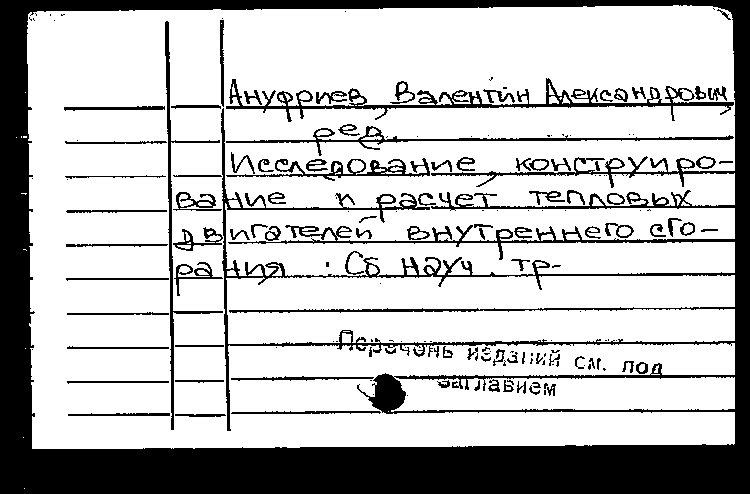 Ануфриев, Валентин Александрович,
ред.
Исследование, конструиро-
вание и расчет тепловых
двигателей внутреннего сго-
рания : Сб науч. тр.
Перечень изданий см. под
заглавием